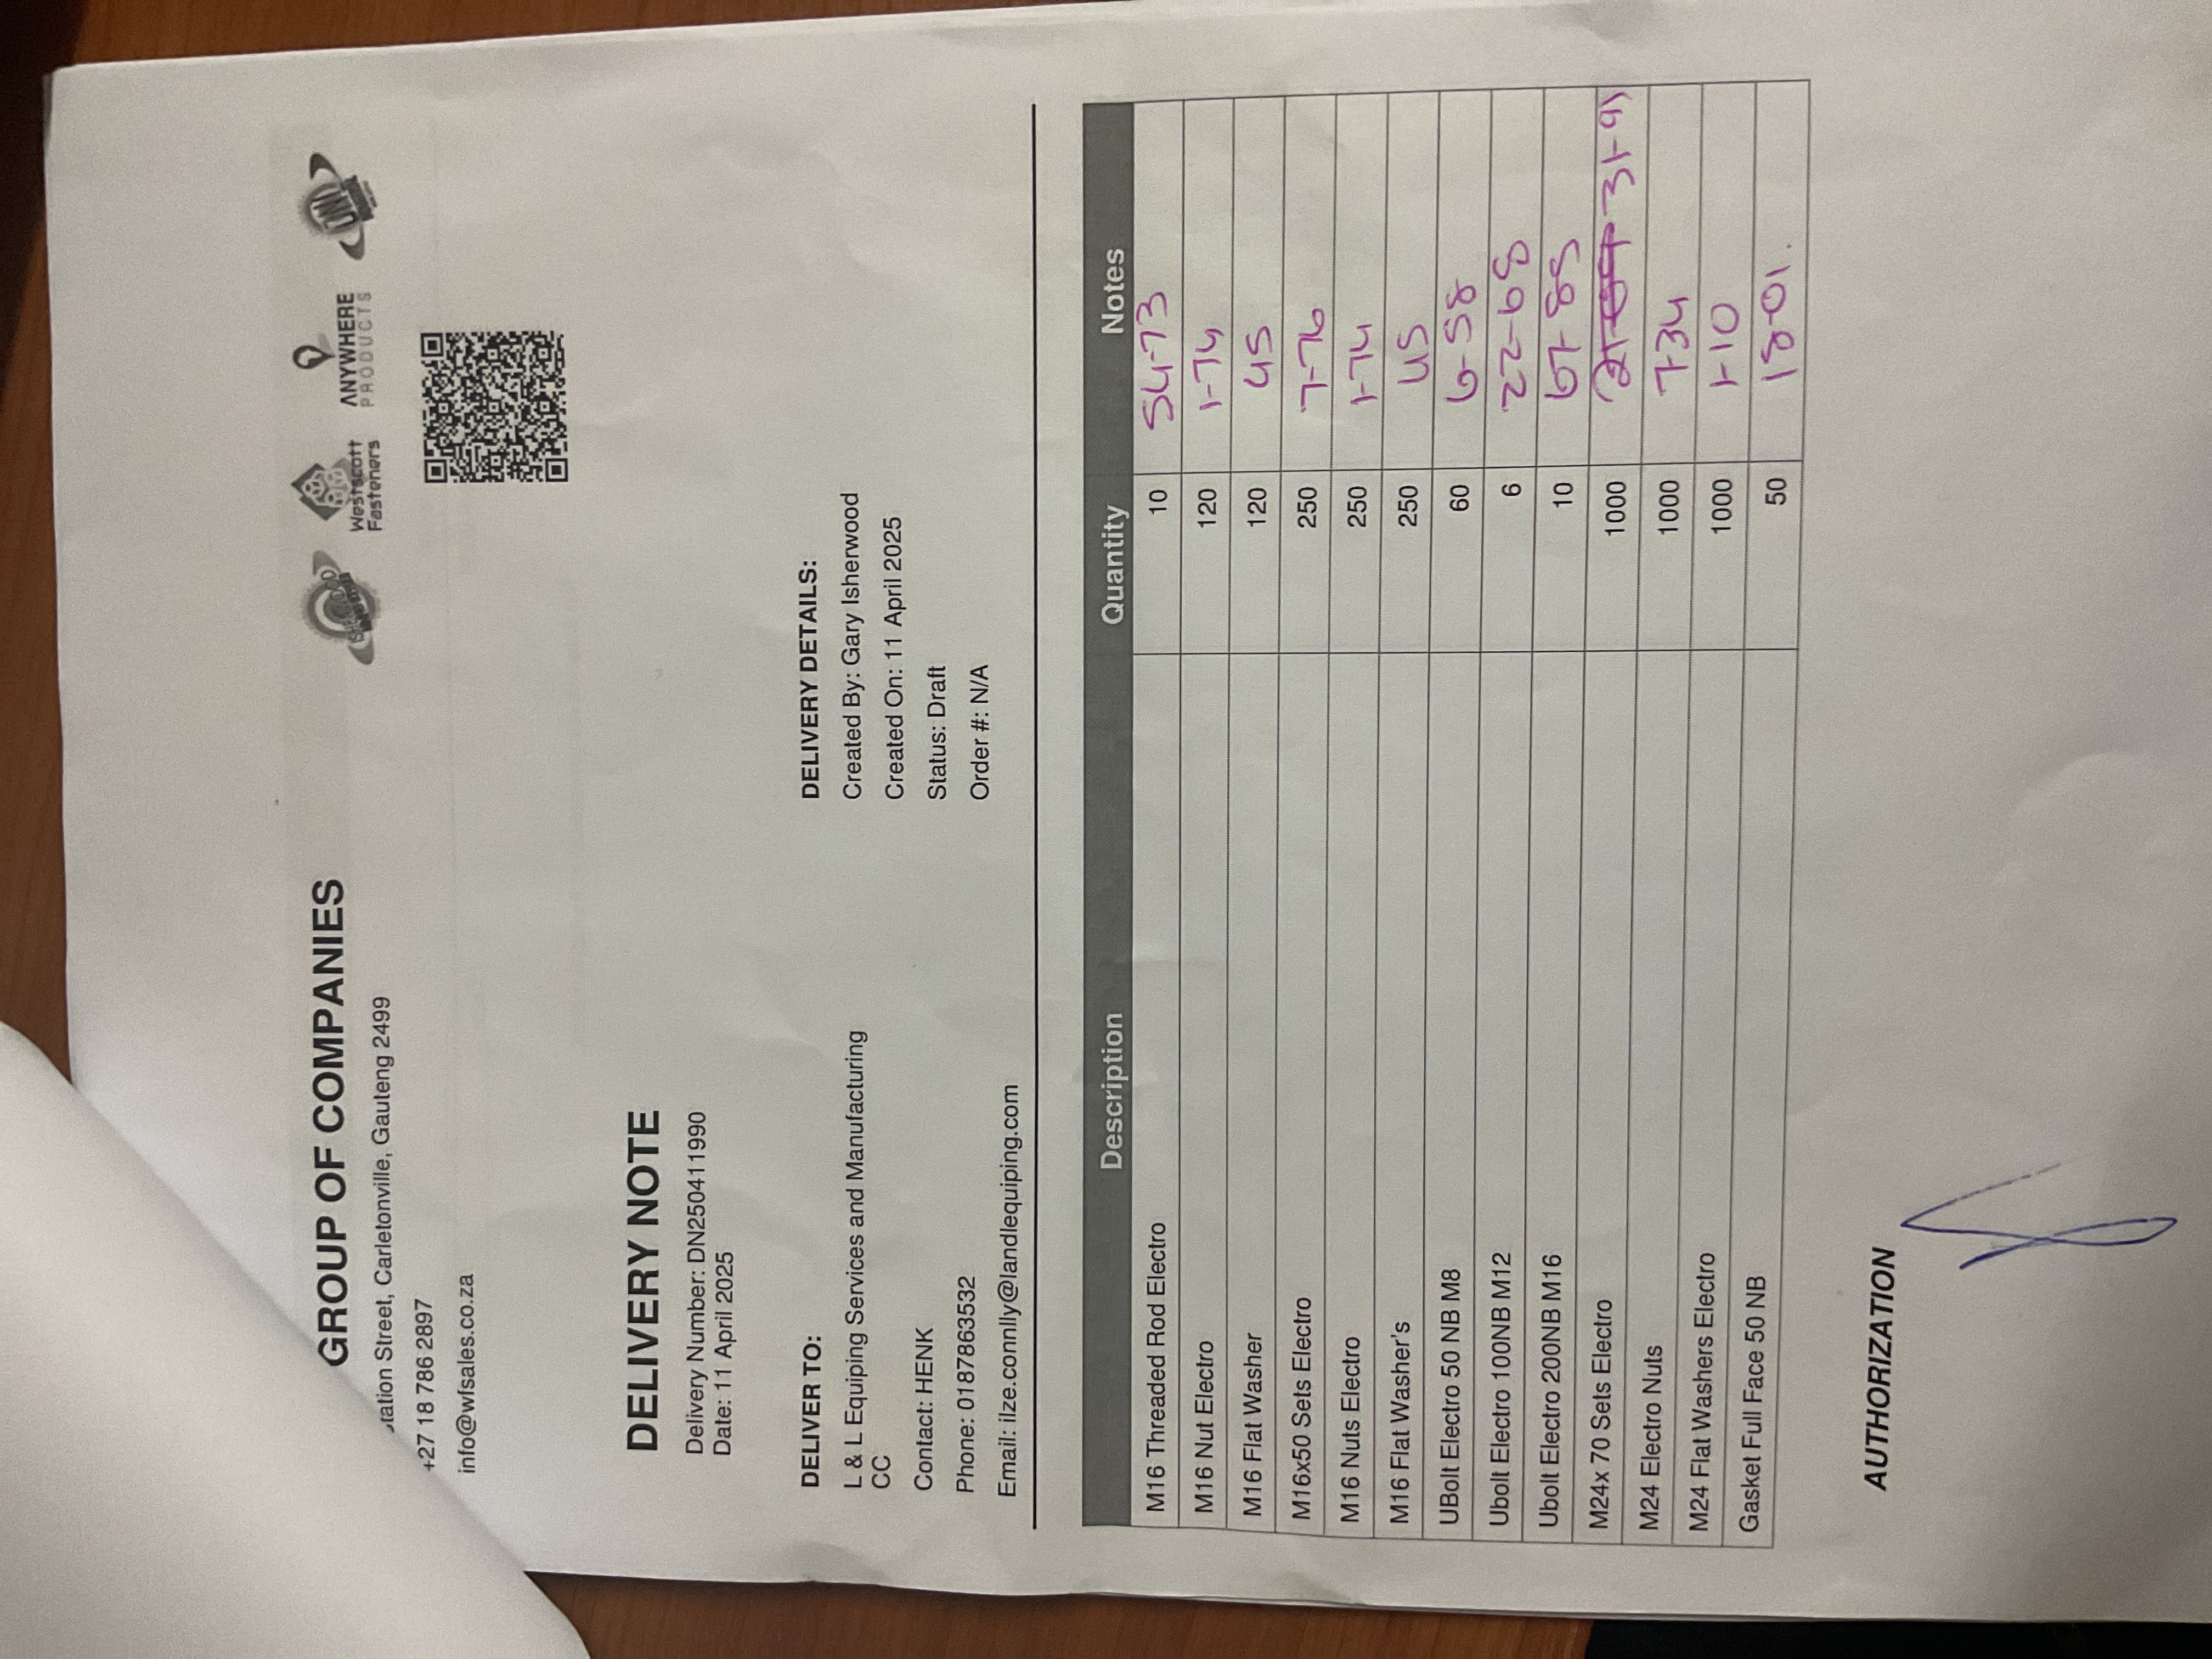 GROUP OF COMPANIES
Station Street, Carletonville, Gauteng 2499
+27 18 786 2897
info@wfsales.co.za
ISHERWOOD
Westscott
Fasteners
ANYWHERE
PRODUCTS
DELIVERY NOTE
Delivery Number: DN250411990
Date: 11 April 2025
DELIVER TO:
L & L Equiping Services and Manufacturing
CC
Contact: HENK
Phone: 0187863532
Email: ilze.connlly@landlequiping.com
DELIVERY DETAILS:
Created By: Gary Isherwood
Created On: 11 April 2025
Status: Draft
Order #: N/A
Description Quantity Notes
M16 Threaded Rod Electro 10 54-73
M16 Nut Electro 120 1-74
M16 Flat Washer 120 45
M16x50 Sets Electro 250 7-76
M16 Nuts Electro 250 1-74
M16 Flat Washer's 250 45
UBolt Electro 50 NB M8 60 6-58
Ubolt Electro 100NB M12 6 22-68
Ubolt Electro 200NB M16 10 67-85
M24x 70 Sets Electro 1000 31-91
M24 Electro Nuts 1000 7-34
M24 Flat Washers Electro 1000 1-10
Gasket Full Face 50 NB 50 18-01.
AUTHORIZATION